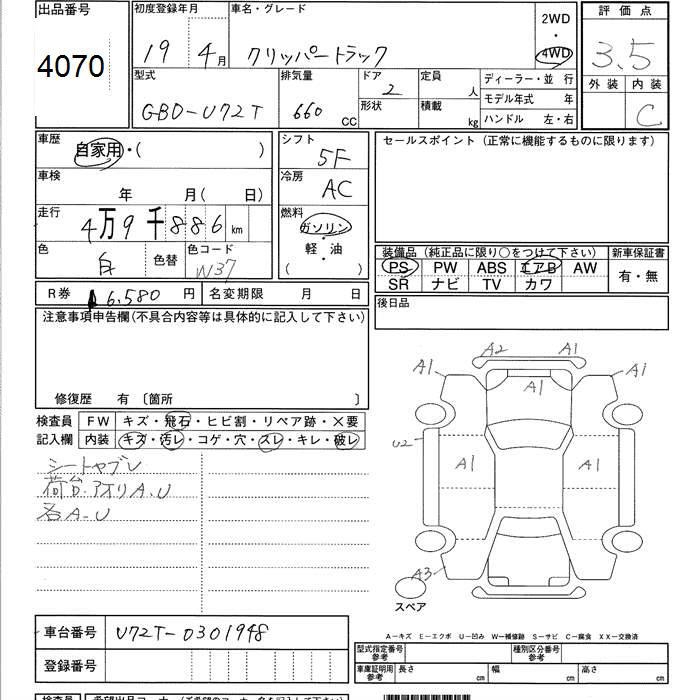 出品番号 初度登録年月 車名・グレード 2WD 評価点
4070 19年 4月 クリッパートラック ・ 4WD 3.5
型式 排気量 ドア 定員 ディーラー・並行 外装 内装
GBD-U72T 660 CC 2 人 モデル年式 年 C
形状 積載 kg ハンドル 左・右
車歴 自家用・( ) シフト 5F セールスポイント (正常に機能するものに限ります)
車検 年 月( 日) 冷房 AC
走行 4万9千886 km 燃料 ガソリン・軽油 ( )
色 白 色替 色コード W37
装備品 (純正品に限り○をつけて下さい) 新車保証書
PS PW ABS エアB AW 有・無
SR ナビ TV カワ
R券 6,580 円 名変期限 月 日 後日品
注意事項申告欄(不具合内容等は具体的に記入して下さい)
修復歴 有 〔箇所 〕
検査員 FW キズ・飛石・ヒビ割・リペア跡・×要
記入欄 内装 キズ・汚レ・コゲ・穴・スレ・キレ・破レ
シートヤブレ
荷台.アオリA.U
各A-U
A2 A1
A1 A1 A1
U2 A1 A1
A3
スペア
A-キズ E-エクボ U-凹み W-補修跡 S-サビ C-腐食 XX-交換済
車台番号 U72T-0301948
型式指定番号 参考 種別区分番号 参考
登録番号 車庫証明用 参考 長さ cm 幅 cm 高さ cm